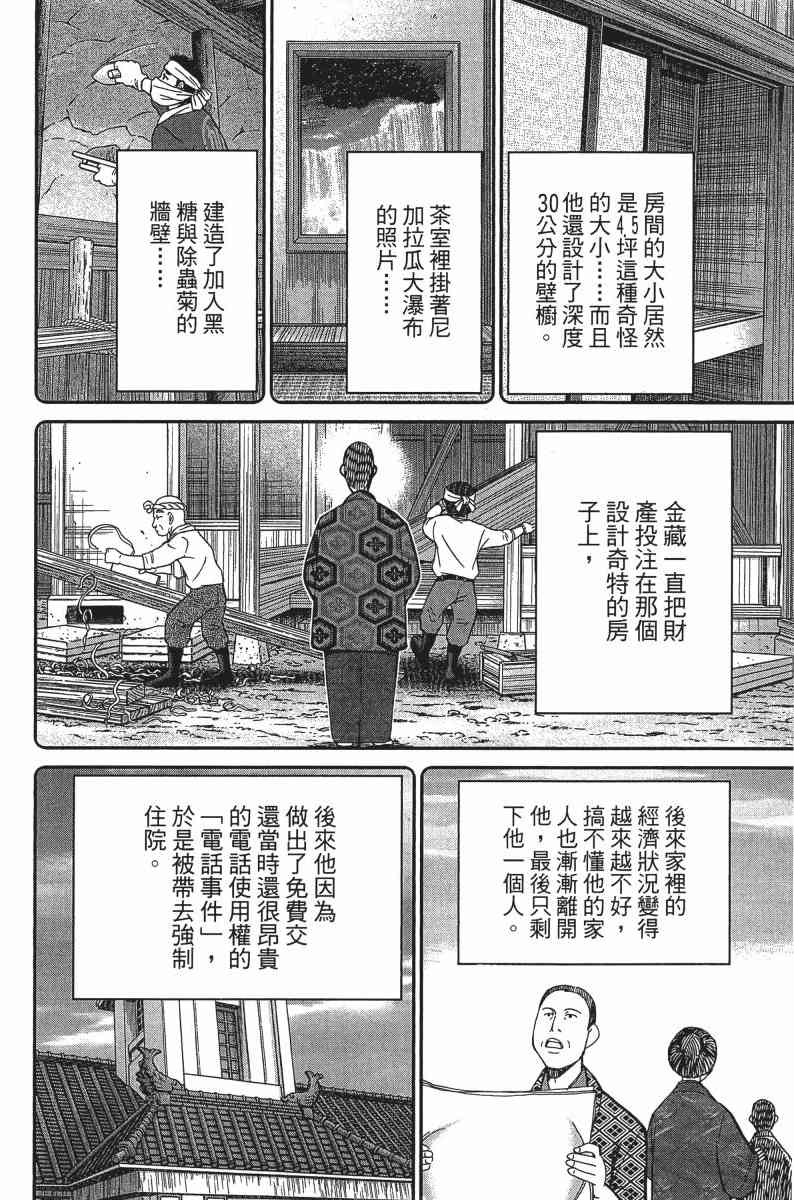 房間的大小居然
是4,5坪這種奇怪
的大小……而且
他還設計了深度
30公分的壁櫥。
茶室裡掛著尼
加拉瓜大瀑布
的照片……
建造了加入黑
糖與除蟲菊的
牆壁……
金藏一直把財
產投注在那個
設計奇特的房
子上，
後來家裡的
經濟狀況變得
越來越不好，
搞不懂他的家
人也漸漸離開
他，最後只剩
下他一個人。
後來他因為
做出了免費交
還當時還很昂貴
的電話使用權的
「電話事件」，
於是被帶去強制
住院。